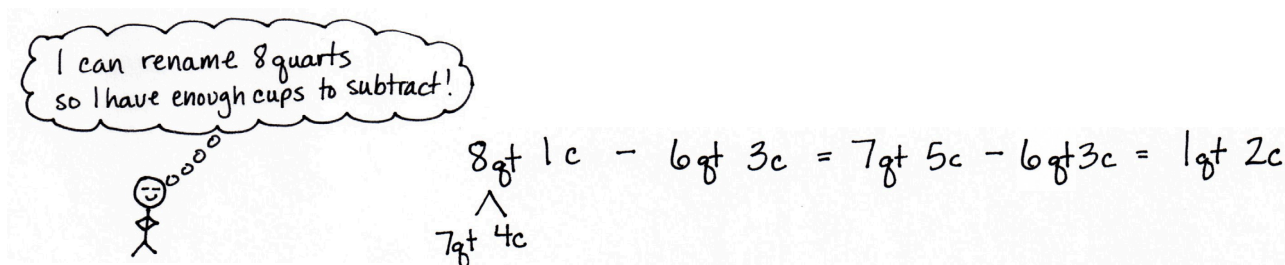 I can rename 8 quarts
so I have enough cups to subtract!
8qt 1c - 6qt 3c = 7qt 5c - 6qt 3c = 1qt 2c
7qt 4c